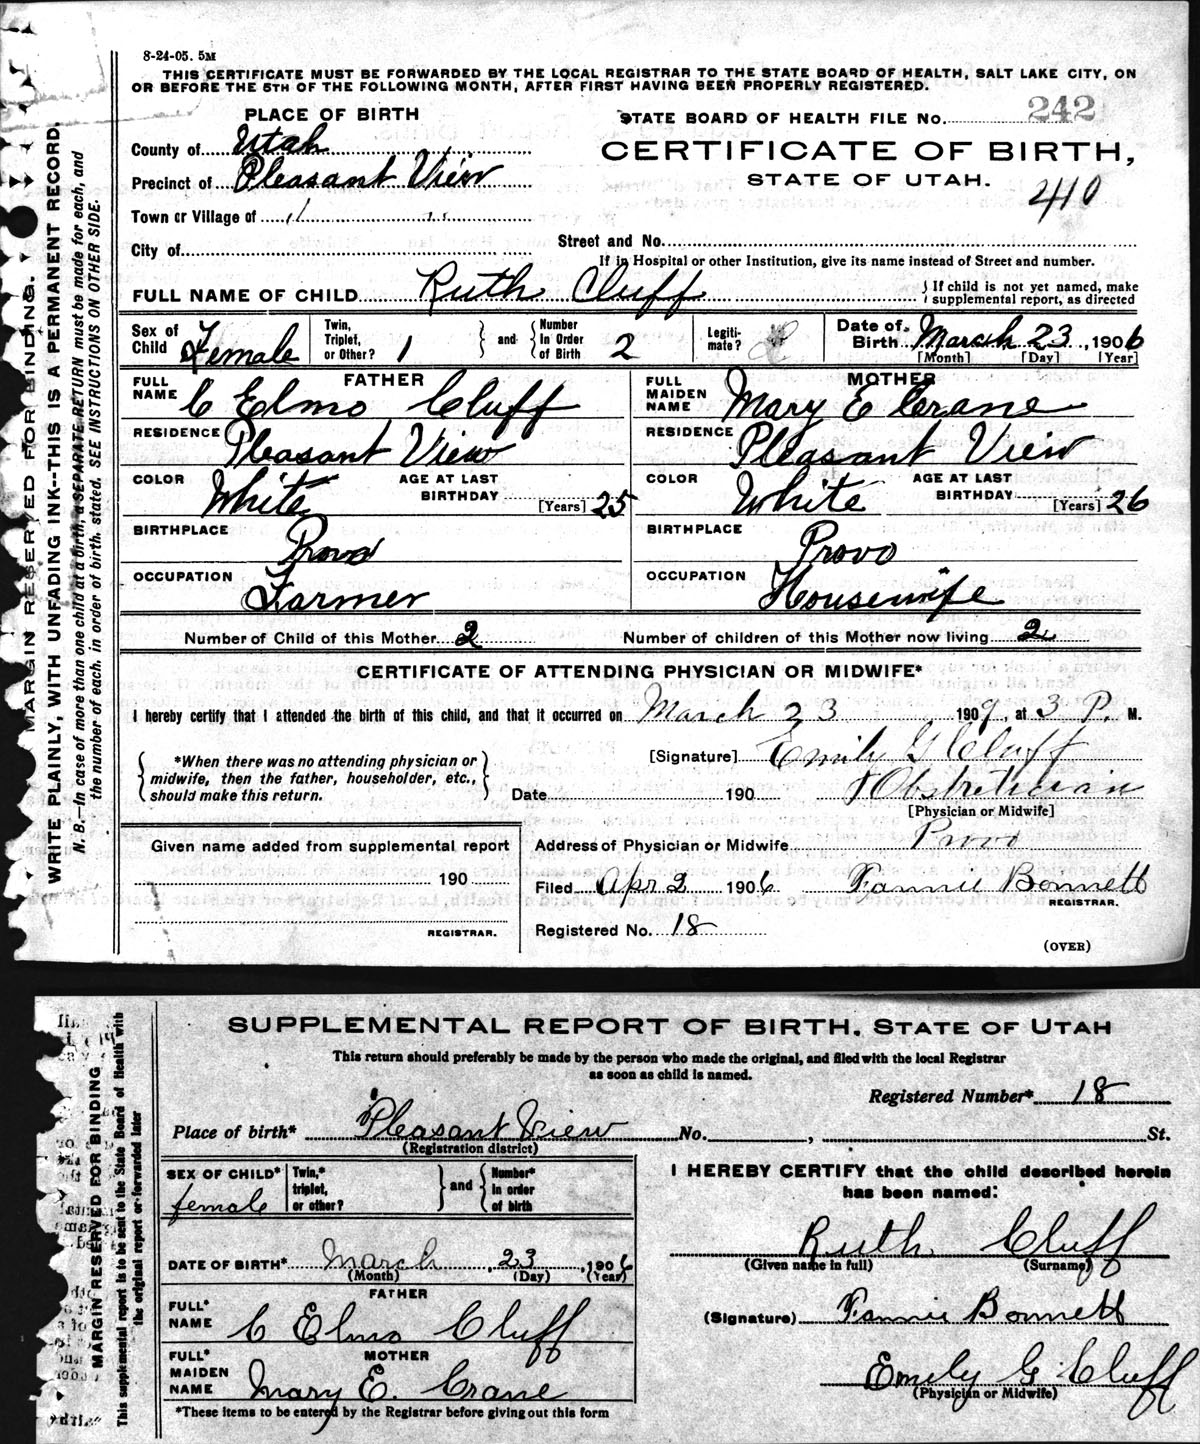 8-24-05. 5M
THIS CERTIFICATE MUST BE FORWARDED BY THE LOCAL REGISTRAR TO THE STATE BOARD OF HEALTH, SALT LAKE CITY, ON
OR BEFORE THE 5TH OF THE FOLLOWING MONTH, AFTER FIRST HAVING BEEN PROPERLY REGISTERED.
MARGIN RESERVED FOR BINDING.
WRITE PLAINLY, WITH UNFADING INK---THIS IS A PERMANENT RECORD.
N. B.—In case of more than one child at a birth, a SEPARATE RETURN must be made for each, and
the number of each, in order of birth, stated. SEE INSTRUCTIONS ON OTHER SIDE.
PLACE OF BIRTH
STATE BOARD OF HEALTH FILE No. 242
County of Utah
CERTIFICATE OF BIRTH,
Precinct of Pleasant View
STATE OF UTAH.
410
Town or Village of " "
Street and No.
City of
If in Hospital or other Institution, give its name instead of Street and number.
FULL NAME OF CHILD Ruth Cluff
If child is not yet named, make
supplemental report, as directed
Sex of Child Female Twin, Triplet, or Other? 1 and Number In Order of Birth 2 Legiti- mate? Date of Birth March 23, 1906
[Month] [Day] [Year]
FATHER MOTHER
FULL NAME C Elmo Cluff FULL MAIDEN NAME Mary E Crane
RESIDENCE Pleasant View RESIDENCE Pleasant View
COLOR White AGE AT LAST BIRTHDAY [Years] 25 COLOR White AGE AT LAST BIRTHDAY [Years] 26
BIRTHPLACE Provo BIRTHPLACE Provo
OCCUPATION Farmer OCCUPATION Housewife
Number of Child of this Mother 2 Number of children of this Mother now living 2
CERTIFICATE OF ATTENDING PHYSICIAN OR MIDWIFE*
I hereby certify that I attended the birth of this child, and that it occurred on March 23 1909, at 3 P. M.
*When there was no attending physician or
midwife, then the father, householder, etc.,
should make this return.
[Signature] Emily G Cluff
Date 190 Obstetrician
[Physician or Midwife]
Given name added from supplemental report
Address of Physician or Midwife Provo
190
Filed Apr 2 1906 Fannie Bonnett
REGISTRAR.
REGISTRAR.
Registered No. 18
(OVER)
MARGIN RESERVED FOR BINDING
This supplemental report is to be sent to the State Board of Health with
the original report or forwarded later
SUPPLEMENTAL REPORT OF BIRTH, STATE OF UTAH
This return should preferably be made by the person who made the original, and filed with the local Registrar
as soon as child is named.
Registered Number* 18
Place of birth* Pleasant View No. , St.
(Registration district)
SEX OF CHILD* female Twin,* triplet, or other? and Number* in order of birth
I HEREBY CERTIFY that the child described herein
has been named:
Ruth Cluff
(Given name in full) (Surname)
DATE OF BIRTH* March, 23, 1906
(Month) (Day) (Year)
FATHER
FULL* NAME C Elmo Cluff
(Signature) Fannie Bonnett
MOTHER
FULL* MAIDEN NAME Mary E. Crane
Emily G Cluff
(Physician or Midwife)
*These items to be entered by the Registrar before giving out this form